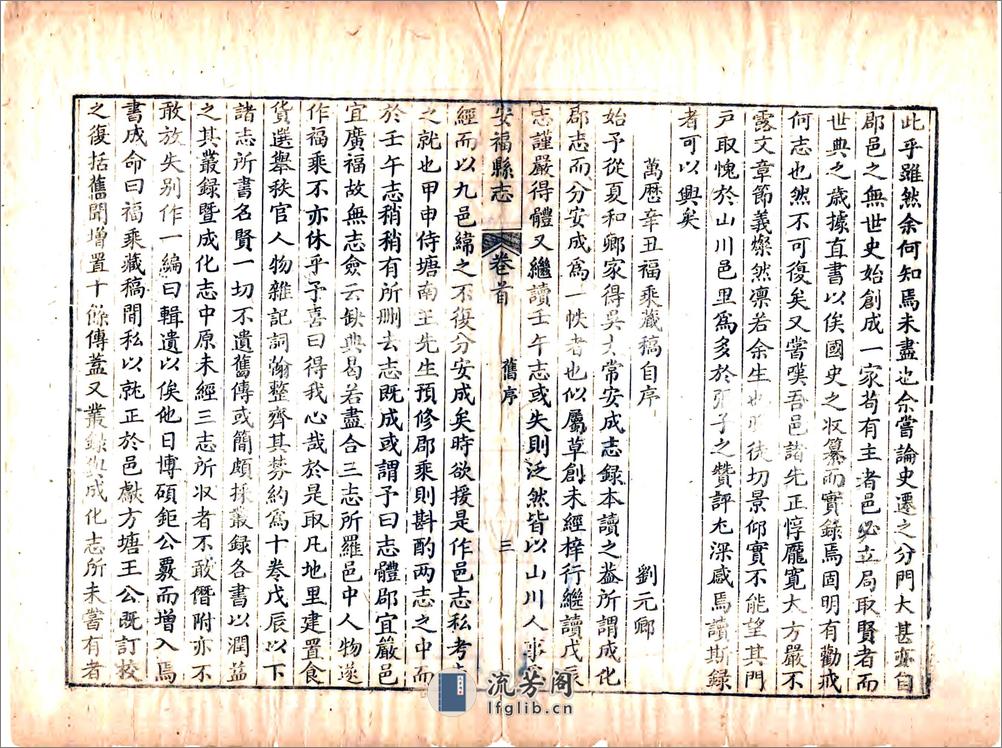 此乎雖然余何知焉未盡也余嘗論史遷之分門大甚亦自
郡邑之無世史始創成一家苟有主者邑必立局取賢者而
世典之歲據直書以俟國史之收纂而實錄焉固明有勸戒
何志也然不可復矣又嘗嘆吾邑諸先正惇龐寬大方嚴不
露文章節義燦然凛若余生也晚徒切景仰實不能望其門
戶取愧於山川邑里爲多於張子之贊評尤深感焉讀斯錄
者可以興矣
萬曆辛丑福乘藏稿自序 劉元卿
始予從夏和卿家得吳太常安成志錄本讀之葢所謂成化
郡志而分安成爲一帙者也似屬草創未經梓行繼讀戊辰
志謹嚴得體又繼讀壬午志或失則泛然皆以山川人事
安福縣志 卷首 舊序 三
經而以九邑緯之不復分安成矣時欲援是作邑志私考
之就也甲申侍塘南王先生預修郡乘則斟酌两志之中而
於壬午志稍稍有所删去志既成或謂予曰志體郡宜嚴邑
宜廣福故無志僉云缺典曷若盡合三志所羅邑中人物遂
作福乘不亦休乎予喜曰得我心哉於是取凡地里建置食
貨選舉秩官人物雜記詞翰整齊其棼約爲十卷戊辰以下
諸志所書名賢一切不遺舊傳或簡頗採叢錄各書以潤益
之其叢錄暨成化志中原未經三志所收者不敢僭附亦不
敢放失别作一編曰輯遺以俟他日博碩鉅公覈而增入焉
書成命曰福乘藏稿閒私以就正於邑獻方塘王公既訂校
之復括舊聞增置十餘傳葢又叢錄與成化志所未嘗有者
流芳阁
lfglib.cn